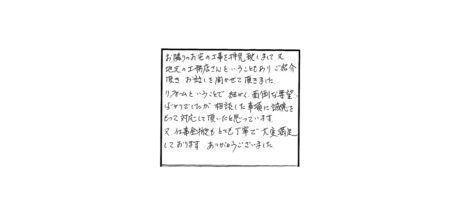 お隣りのお宅の工事を拝見致しまして 又
地元の工務店さんということもあり ご紹介
頂き お話しを聞かせて頂きました
リフォームということで 細かく 面倒な要望
ばかりでしたが 相談した事項に誠実を
もって対応して頂いたと思っています
又 仕事全般も とても丁寧で 大変満足
しております ありがとうございました